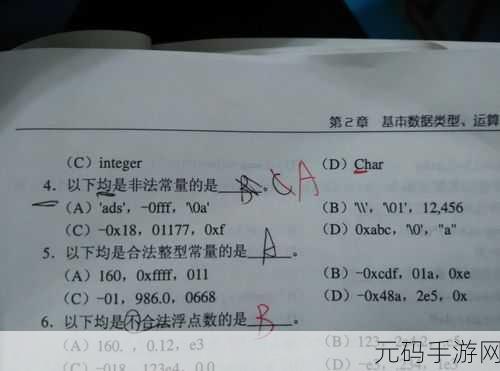 第2章 基本数据类型、运算
(C) integer (D) Char
4. 以下均是非法常量的是 A
(A) 'ads', -0fff, '\0a' (B) '\\', '\01', 12,456
(C) -0x18, 01177, 0xf (D) 0xabc, '\0', "a"
5. 以下均是合法整型常量的是 A 。
(A) 160, 0xffff, 011 (B) -0xcdf, 01a, 0xe
(C) -01, 986.0, 0668 (D) -0x48a, 2e5, 0x
6. 以下均是不合法浮点数的是 B 。
(A) 160. , 0.12, e3 (B) 123
(C) -018, 123e4, 0.0 (D) -e5, 234, 1e3
元码手游网